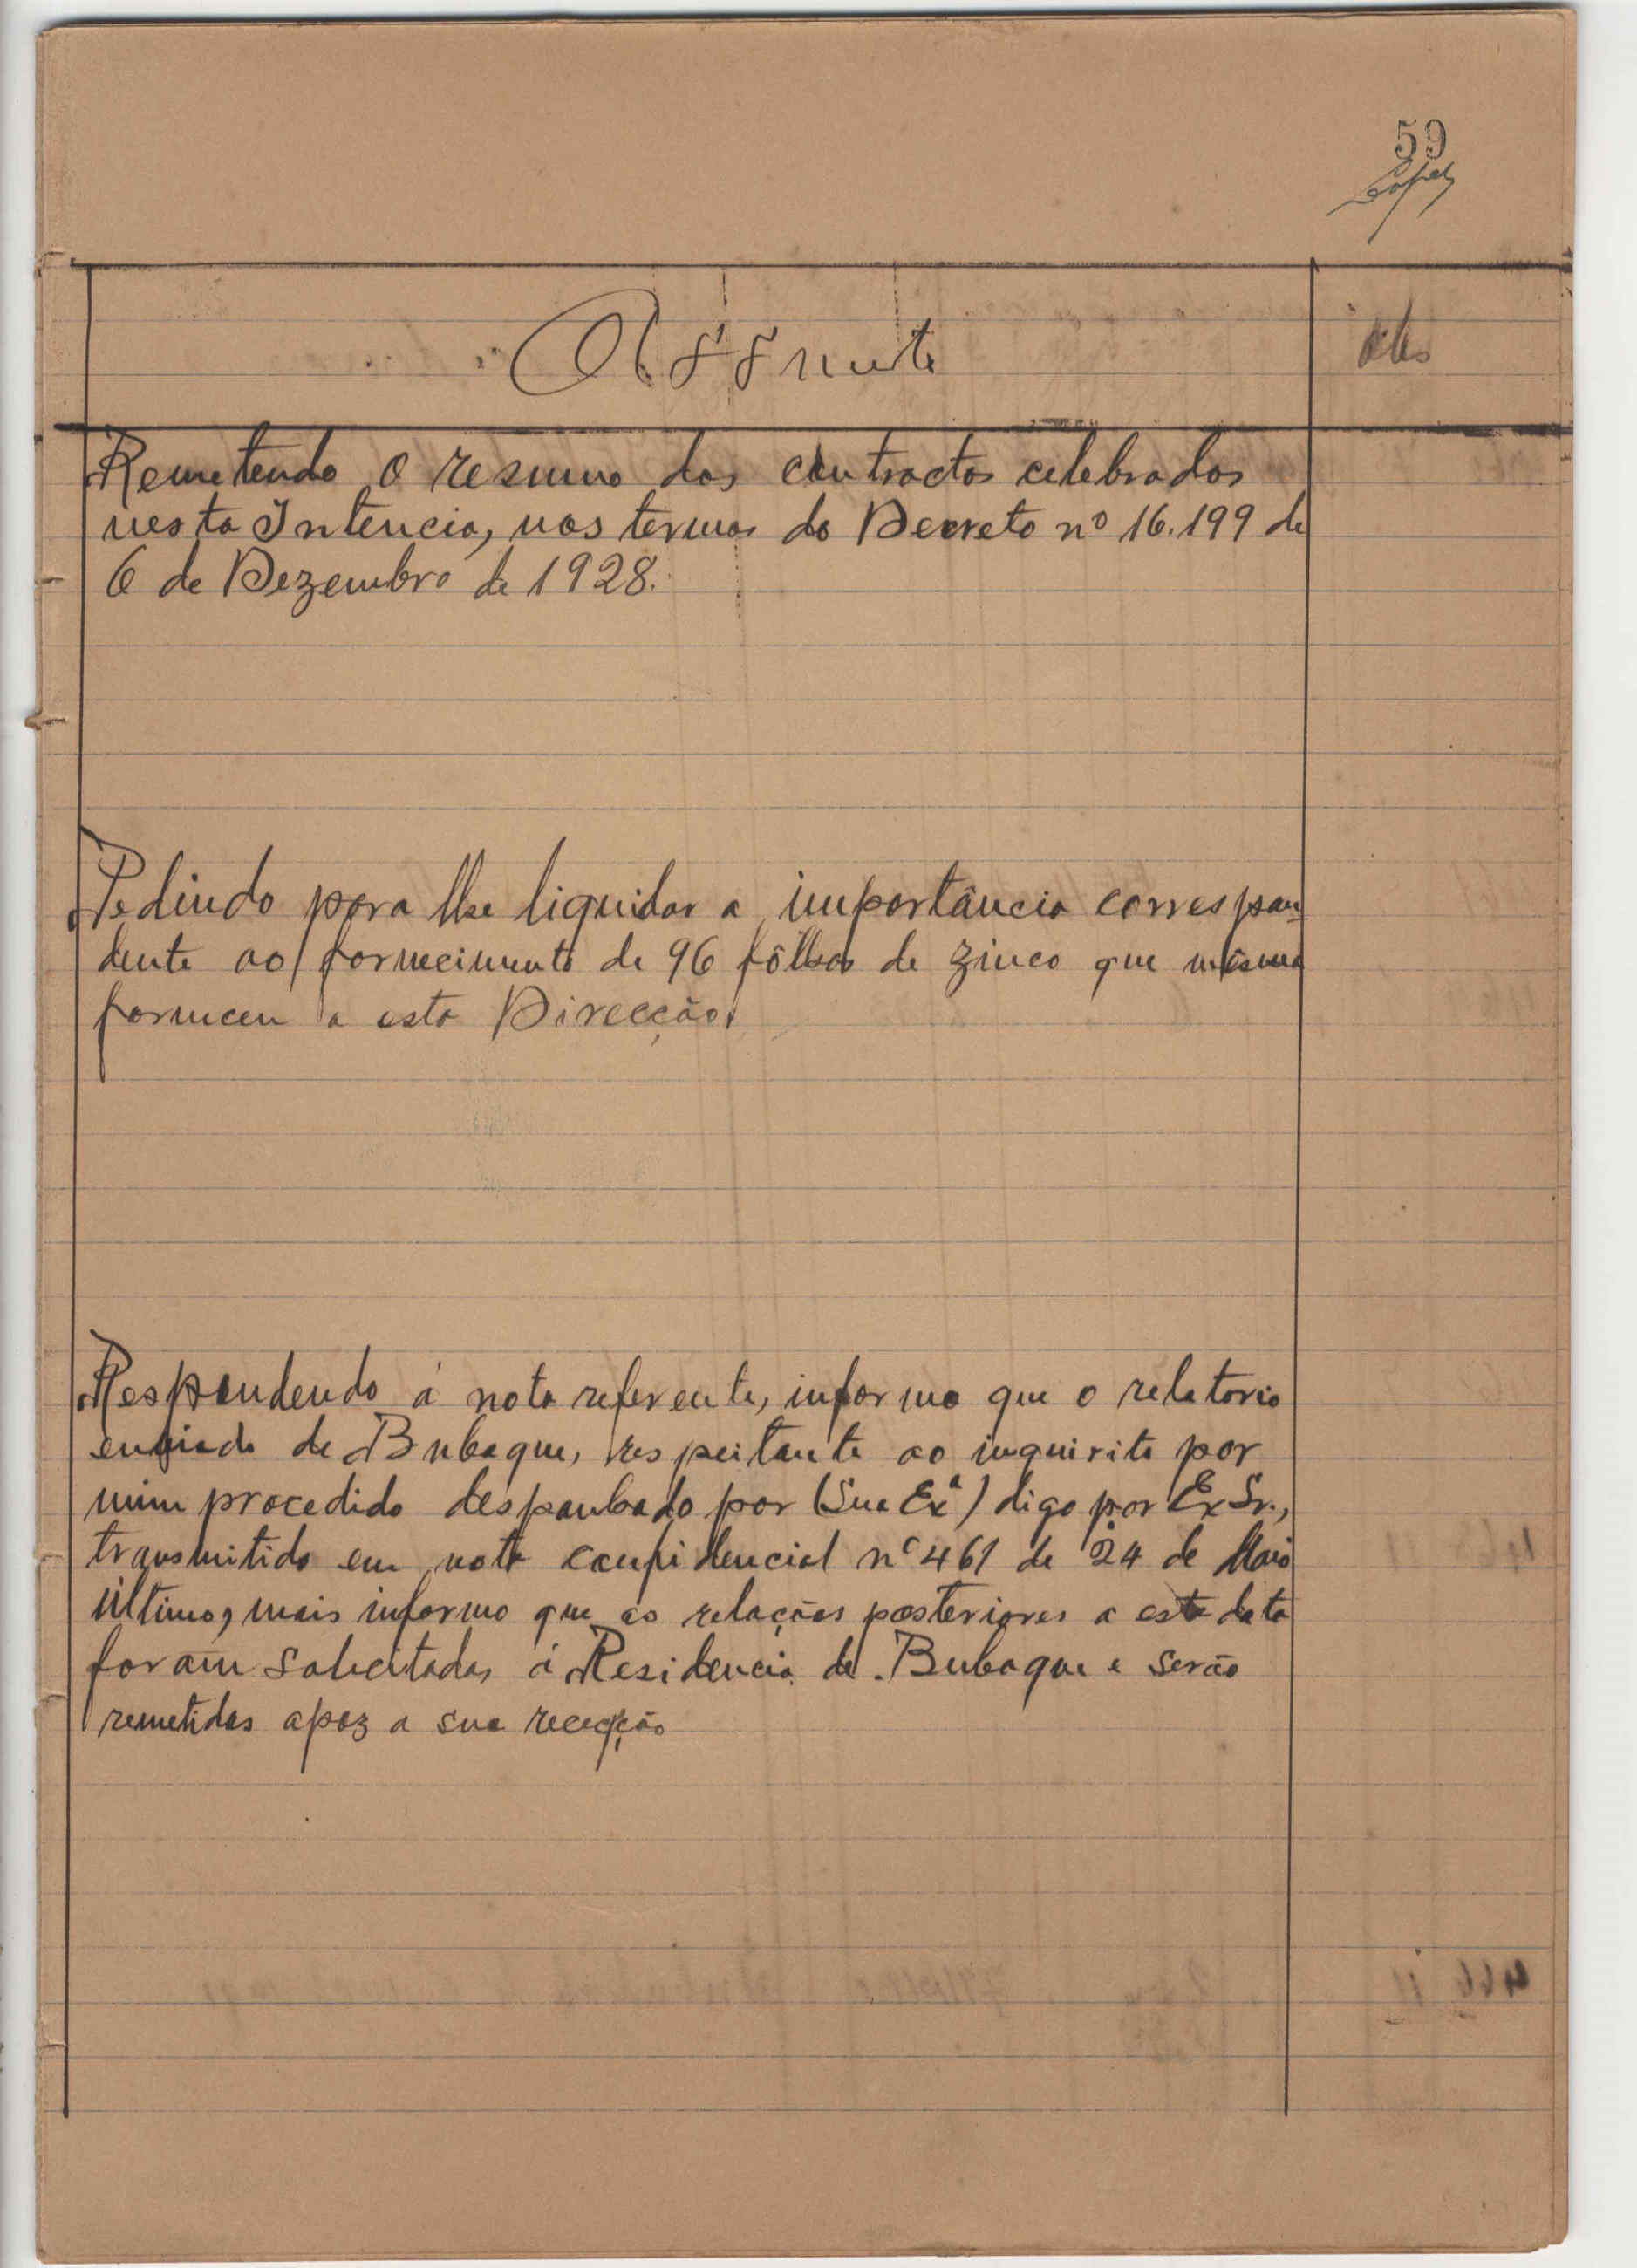 59
Lopes
Assunto
Obs
Remetendo o resumo dos contractos celebrados
nesta Intencia, nos termos do Decreto nº 16.199 de
6 de Dezembro de 1928.
Pedindo para lhe liquidar a importância correspon-
dente ao fornecimento de 96 fôlhas de zinco que mêsma
forneceu a esta Direcção.
Respondendo á nota referente, informo que o relatorio
enviado de Bubaque, respeitante ao inquirito por
mim procedido despanbado por (Sua Exª) digo por Ex Sr.,
transmitido em nota confidencial nº 461 de 24 de Maio
último, mais informo que as relações posteriores a esta data
foram solicitadas á Residencia de Bubaque e serão
remetidas apoz a sua recepção